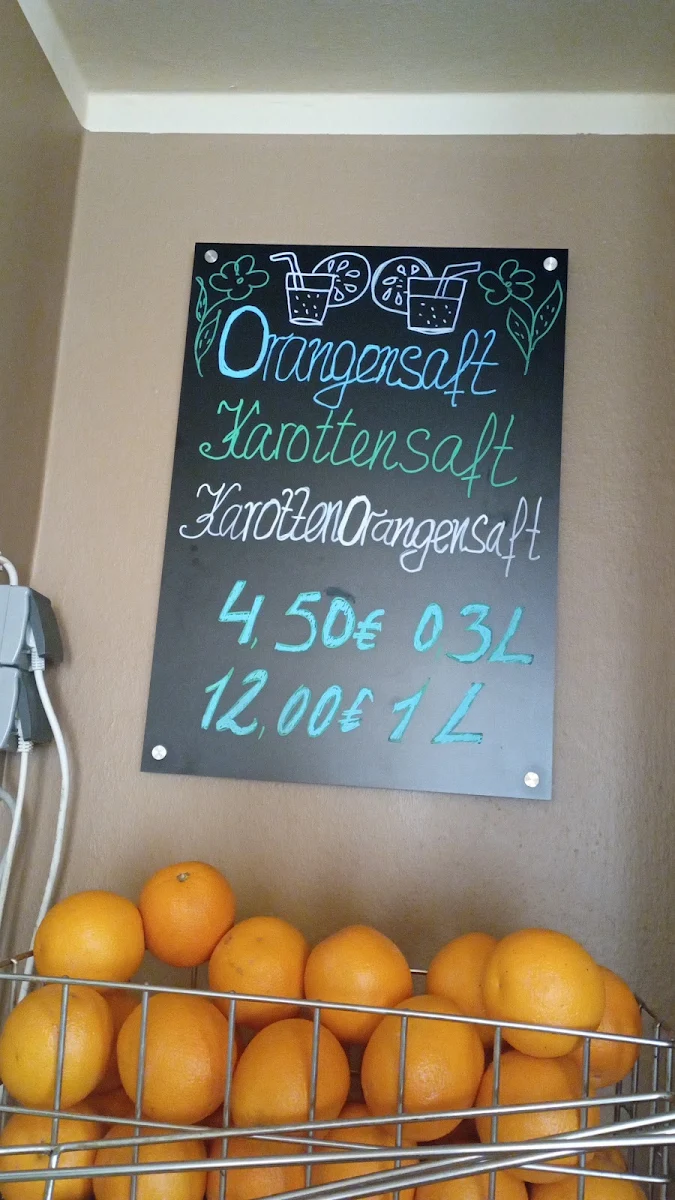 Orangensaft
Karottensaft
KarottenOrangensaft
4,50€ 0,3L
12,00€ 1L